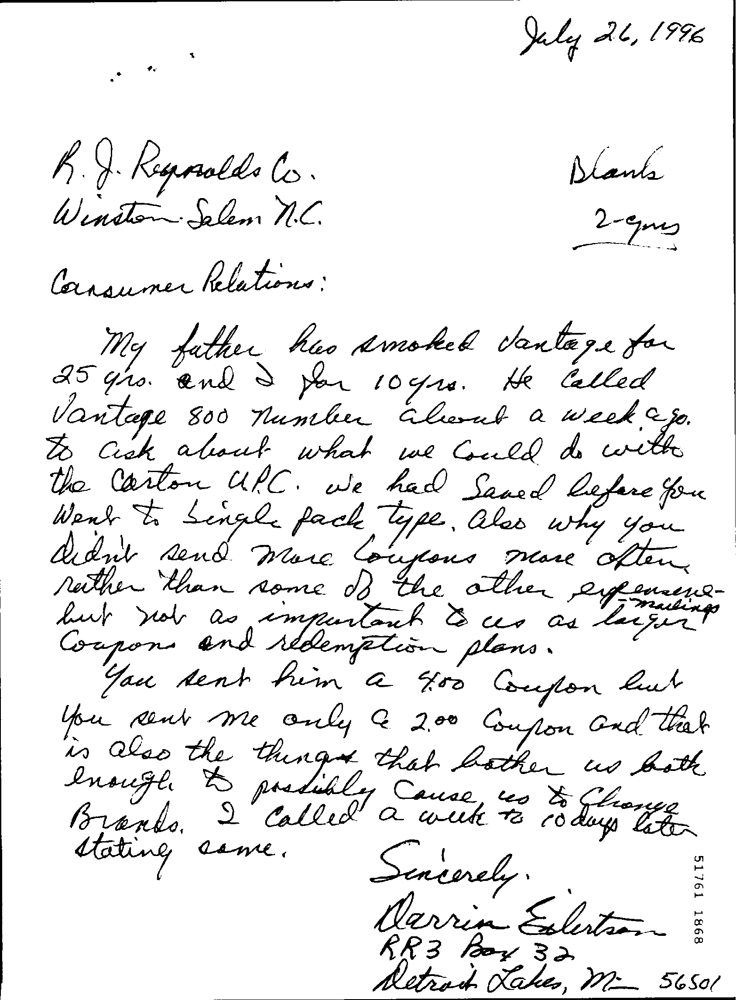 July 26, 1996
R. J. Reynolds Co.
Winston-Salem N.C.
Blank
Consumer Relations:
My father has smoked Vantage for
25 yrs. and I for 10 yrs. He Called
Vantage 800 number about a week ago.
to ask about what we Could do with
the Carton U.P.C. we had Saved before you
Went to Single pack type. Also why you
didn't send more Coupons more often
rather than some of the other expensive-
-mailings
but not as important to us as larger
Coupons and redemption plans.
You sent him a 4.00 Coupon but
you sent me only a 2.00 Coupon and that
is also the things that bother us both
enough to possibly Cause us to Change
Brands. I Called a week to 10 days later
stating same.
Sincerely.
Darrin Eilertson
RR3 Box 32
Detroit Lakes, Mn 56501
51761 1868